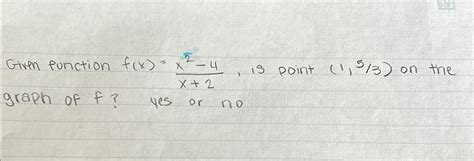 Given function f(x) = x² - 4 / x + 2 , is point (1, 5/3) on the
graph of f? yes or no